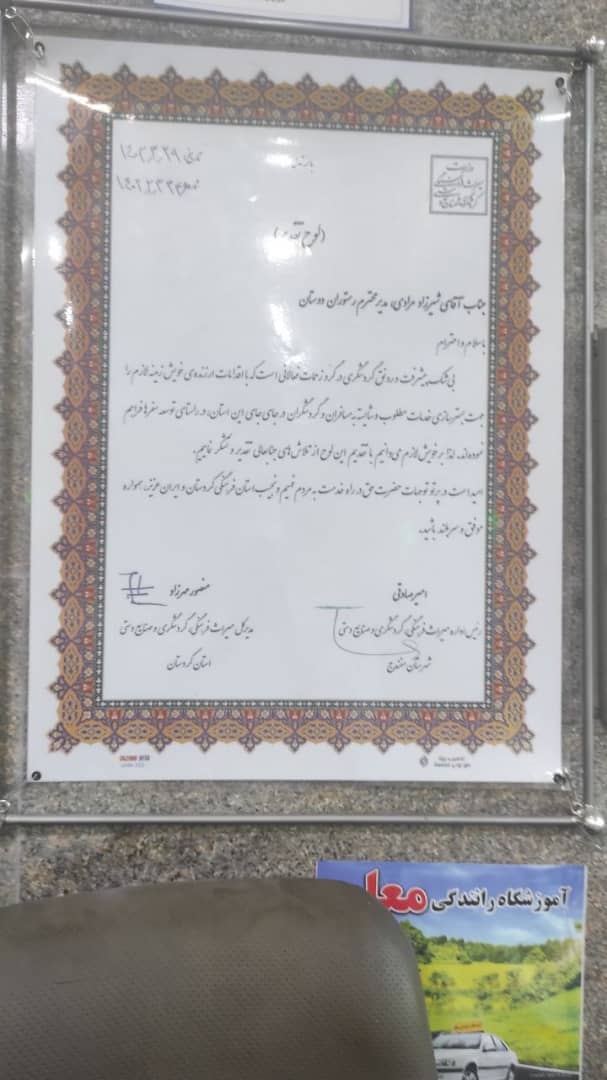 تاریخ ۱۴۰۲,۳,۲۹
(لوح تقدیر)
جناب آقای شیرزاد مرادی؛ مدیر محترم رستوران دوستان
با سلام و احترام
بی شک پیشرفت و رونق گردشگری در گرو زحمات فعالانی است که با اقدامات ارزنده‌ی خویش زمینه لازم را
جهت بسترسازی خدمات مطلوب و شایسته به مسافران و گردشگران در جای جای این استان، در راستای توسعه سفرها فراهم
نموده‌اند. لذا بر خویش لازم می‌دانیم با تقدیم این لوح از تلاش‌های جنابعالی تقدیر و تشکر نماییم.
امید است در پرتو توجهات حضرت حق در راه خدمت به مردم فهیم و نجیب استان فرهنگی کردستان و ایران عزیز، همواره
موفق و سربلند باشید.
امیر صادقی
رئیس اداره میراث فرهنگی، گردشگری و صنایع دستی
شهرستان سنندج
منصور مهرزاد
مدیرکل میراث فرهنگی، گردشگری و صنایع دستی
استان کردستان
آموزشگاه رانندگی